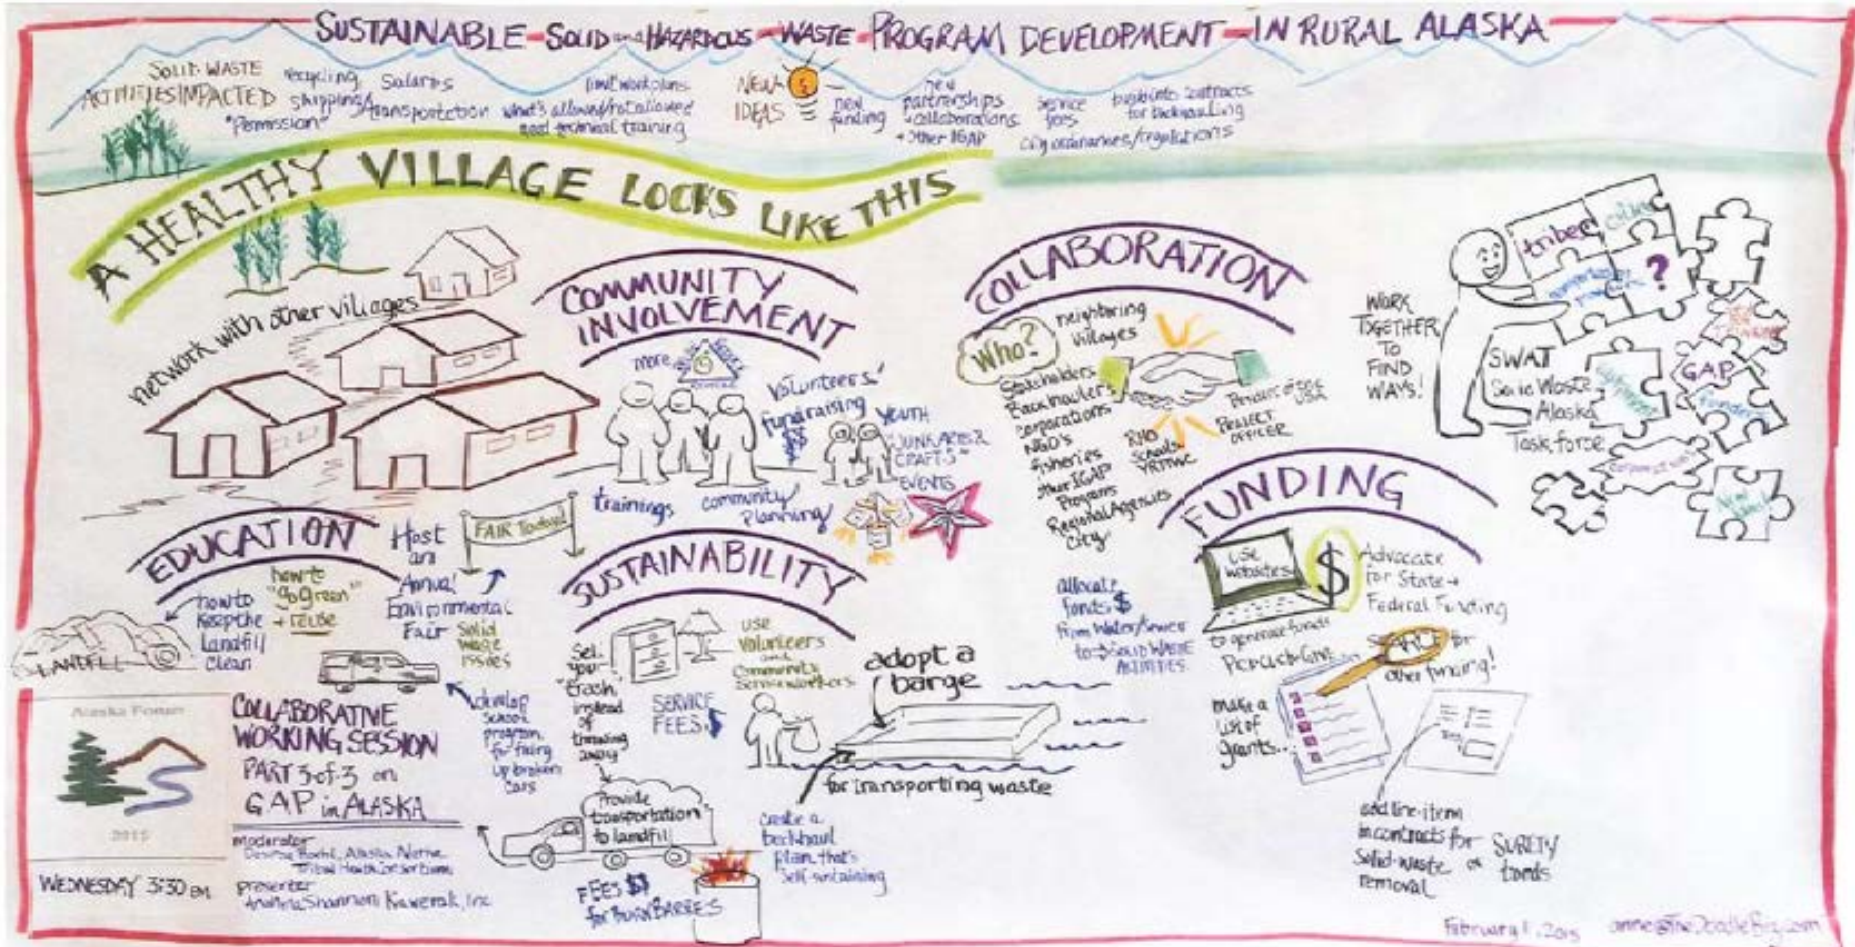 SUSTAINABLE SOLID and HAZARDOUS WASTE PROGRAM DEVELOPMENT IN RURAL ALASKA
SOLID WASTE
ACTIVITIES IMPACTED
"Permission"
recycling
shipping/
transportation
Salaries
limit workplans
what's allowed/not allowed
need technical training
NEW
IDEAS
$
new
funding
new
partnerships
+ collaborations
+ other IGAP
service
fees
contracts
for backhauling
city ordinances/regulations
A HEALTHY VILLAGE LOOKS LIKE THIS
network with other villages
COMMUNITY
INVOLVEMENT
more
Volunteers!
fundraising
$$
YOUTH
"JUNK ARTS &
CRAFTS"
EVENTS
trainings
community
Planning
COLLABORATION
Who?
neighboring
villages
Stakeholders
Backhaulers
corporations
NGO's
fisheries
other IGAP
Programs
Regional Agencies
City
RHO
SCHOOLS
YRITWC
PROJECT
OFFICER
WORK
TOGETHER
TO
FIND
WAYS!
tribes
cities
?
SWAT
Solid Waste
Alaska
Task force
equipment
GAP
funders
EDUCATION
how to
keep the
landfill
clean
how to
"go green"
+ reuse
LANDFILL
Host
an
Annual
Environmental
Fair
Solid
Wage
Issues
FAIR Today!
develop
school
program
for fixing
up broken
cars
SUSTAINABILITY
Sell
your
"trash"
instead
of
throwing
away
use
Volunteers
and
Community
Service workers
SERVICE
FEES $
adopt a
barge
for transporting waste
Provide
transportation
to landfill
create a
backhaul
plan that's
self-sustaining
FEES $$
for BURN BARRELS
FUNDING
allocate
funds $
from Water/Sewer
to SOLID WASTE
ACTIVITIES
USE
websites
$
to generate funds
PICK CLICK GIVE
Advocate
for State +
Federal Funding
SEARCH for
other funding!
make a
list of
grants...
add line-item
in contracts for
Solid-waste or
removal
SURETY
bonds
Alaska Forum
2015
WEDNESDAY 3:30 PM
COLLABORATIVE
WORKING SESSION
PART 3 of 3 on
GAP in ALASKA
moderator
Alaska Native
Tribal Health Consortium
presenter
Shannon, Kawerak, Inc.
2015
anne@TheDoodleBiz.com